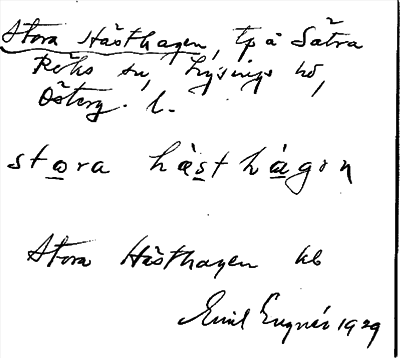 Stora Hästhagen, tp å Sätra
Röks sn, Lysings hd,
Österg. l.
stora hàsthágon
Stora Hästhagen kb
Emil Eugnér 1929